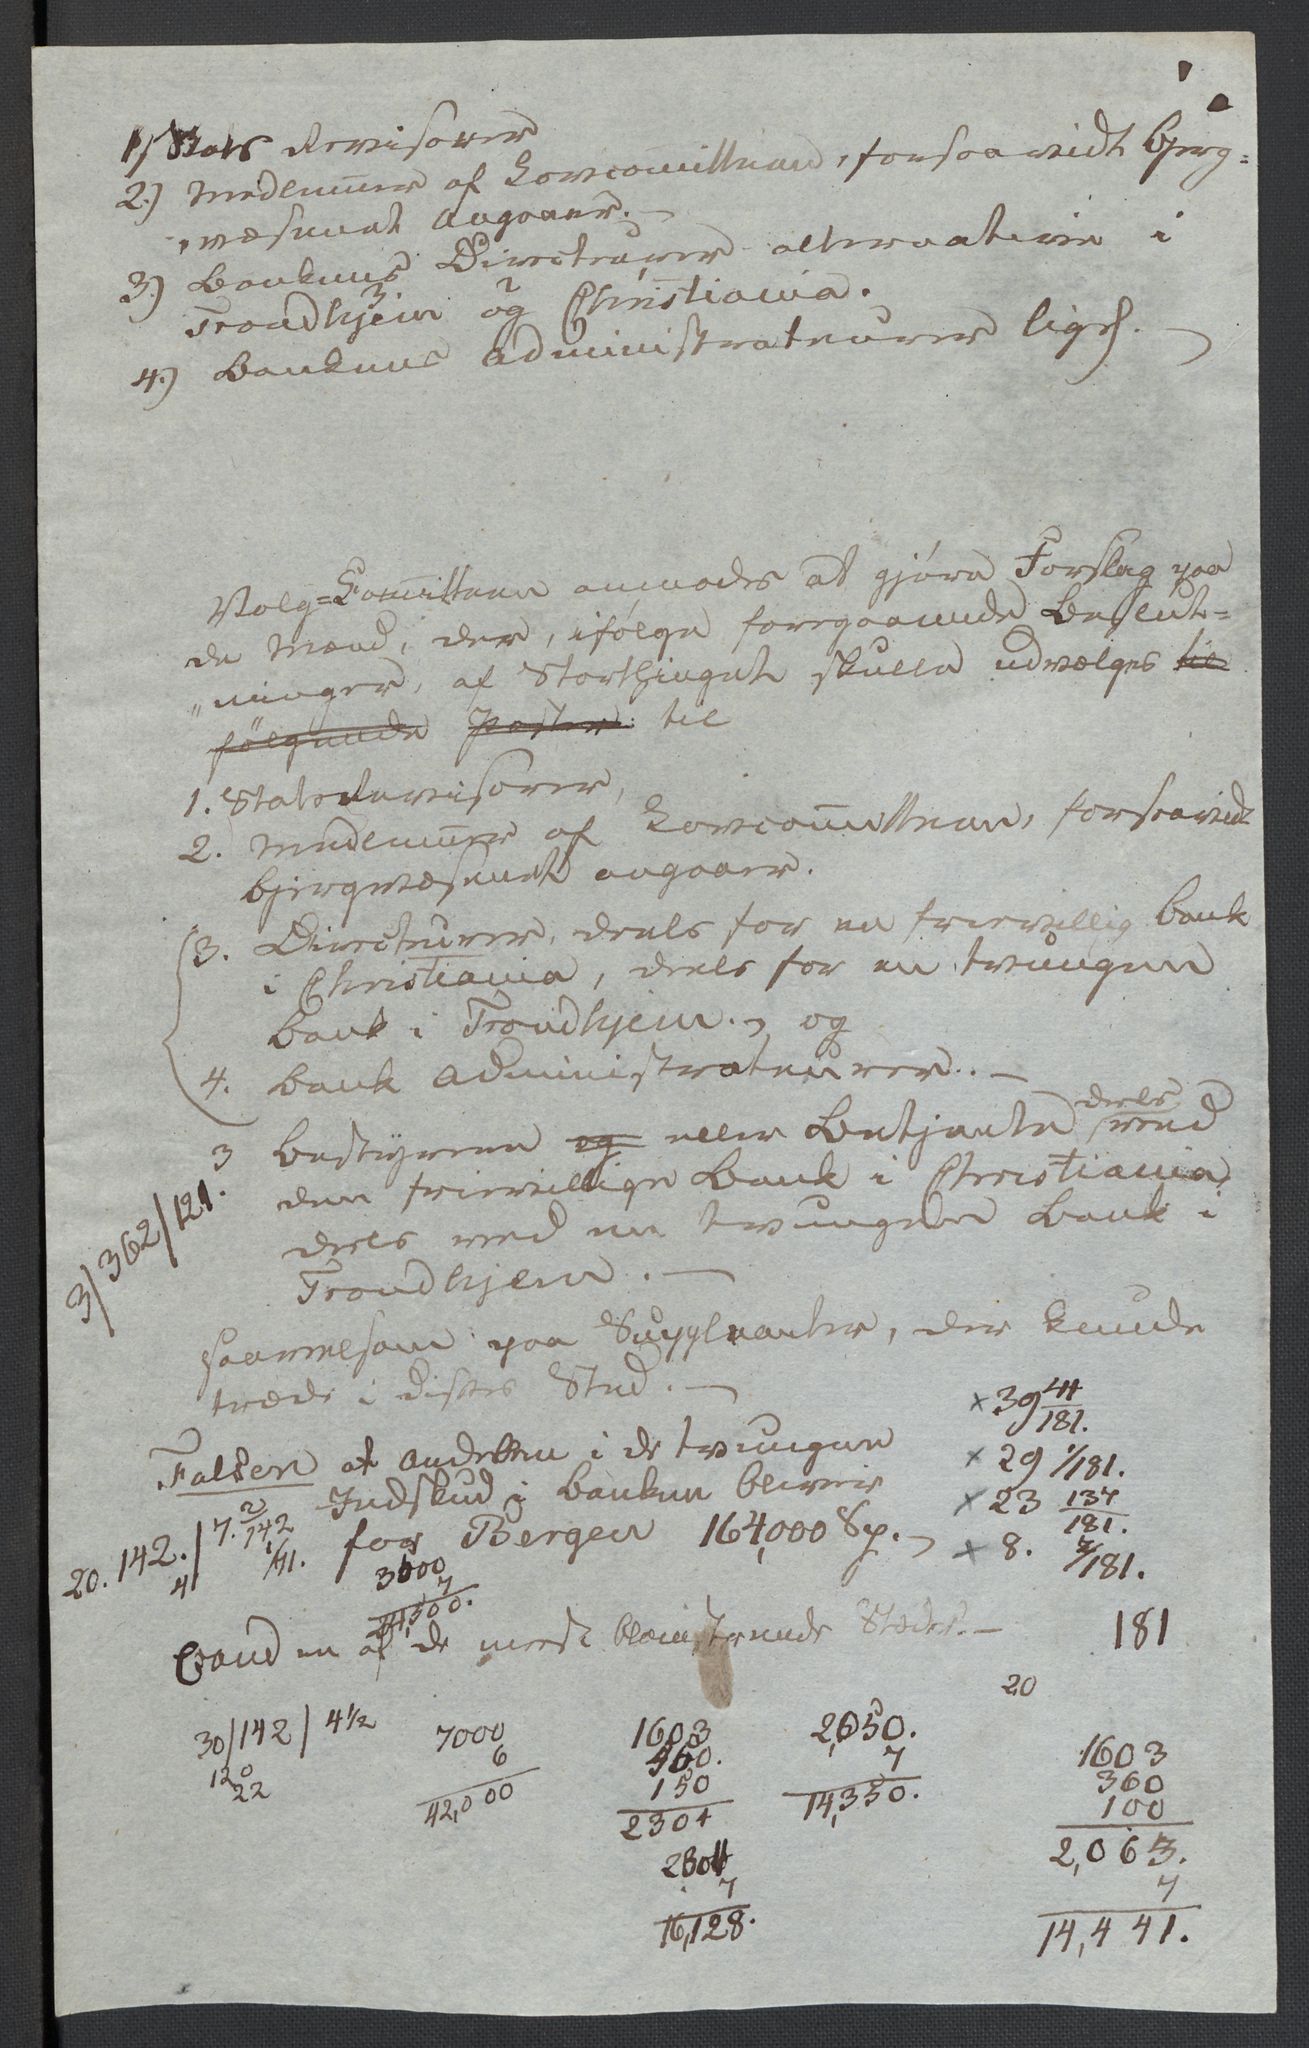 1) Stats Revisorer
2.) Medlem̅er af Lovcomitteen, forsaavidt Bjerg=
væsenet angaaer. —
3.) Bankens Directeurer alternative i
3 2
Trondhjem og Christiania.
4.) Bankens Administrateurer liges. —
Valg=Com̅itteen anmodes at gjøre Forslag paa
de Mænd, der, ifølge foregaaende Beslut=
„ninger, af Storthinget skulle udvælges til
følgende Poster til
1. Statsrevisorer,
2. Medlem̅er af Lovcom̅itteen, forsaavidt
Bjergvæsenet angaaer.
3. Directeurer, deels for en frievillig Bank
i Christiania, deels for en tvungen
Bank i Trondhjem., og
4. Bank Administrateurer. —
deels
3 Bestyrere og eller Betjente ved
den frievillige Bank i Christiania,
deels ved en tvungen Bank i
Trondhjem. —
3/362/121.
saavelsom paa Suppleanter, der kunde
træde i disses Sted. —
× 39 44/181.
Falsen at Andelen i de tvungne
× 29 1/181.
Indskud i Banken bliver
× 23 137/181.
for Bergen 164,000 Sp. —
× 8. 7/181.
20.142./7.2
4 142
1/71.
3000
7
Cand en af de meest blomstrende Stæder. —
181
20
30/142/4½
120
22
7000
6
42,000
1603
150
2304
2304
7
16,128.
2,050.
7
14,350.
1603
360
100
2,063.
7
14,441.